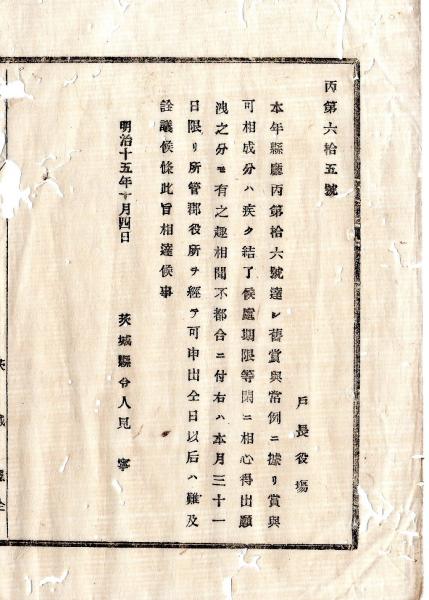 丙第六拾五號
戸長役場
本年縣廳丙第拾六號達シ舊賞與常例ニ據リ賞與
可相成分ハ疾ク結了候處期限等閑ニ相心得出願
洩之分モ有之趣相聞不都合ニ付右ハ本月三十一
日限リ所管郡役所ヲ經テ可申出仝日以后ハ難及
詮議候條此旨相達候事
明治十五年十月四日
茨城縣令人見寧